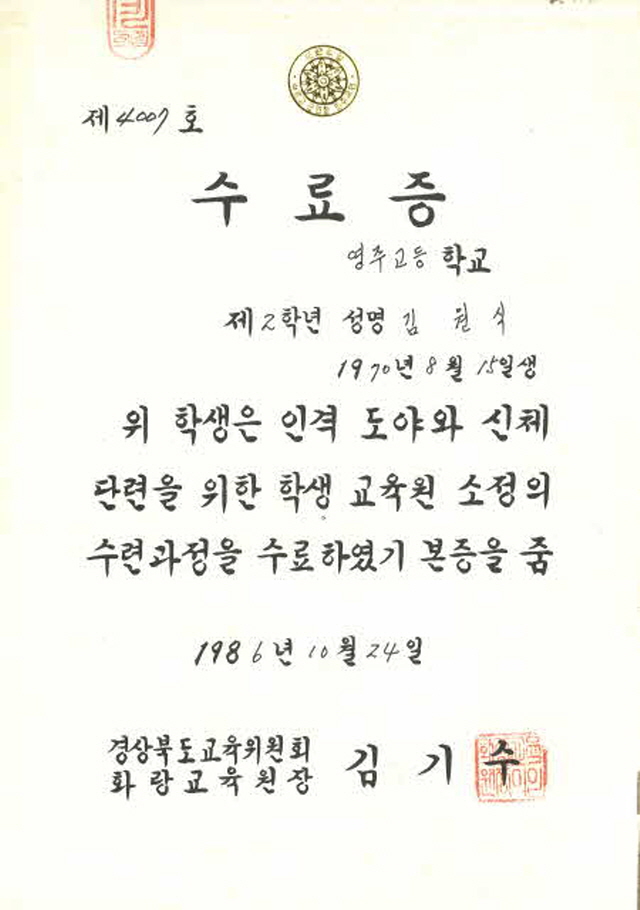 제4007호
수료증
영주고등 학교
제2학년 성명 김 원 식
1970년 8월 15일생
위 학생은 인격 도야와 신체
단련을 위한 학생 교육원 소정의
수련과정을 수료하였기 본증을 줌
1986년 10월 24일
경상북도교육위원회
화랑교육원장 김 기 수